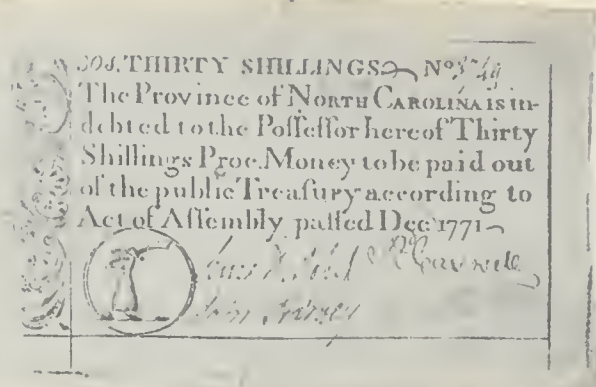 30s. THIRTY SHILLINGS No
The Province of NORTH CAROLINA is in-
debted to the Poſſeſſor hereof Thirty
Shillings Proc. Money to be paid out
of the public Treaſury according to
Act of Aſſembly paſſed Decr 1771